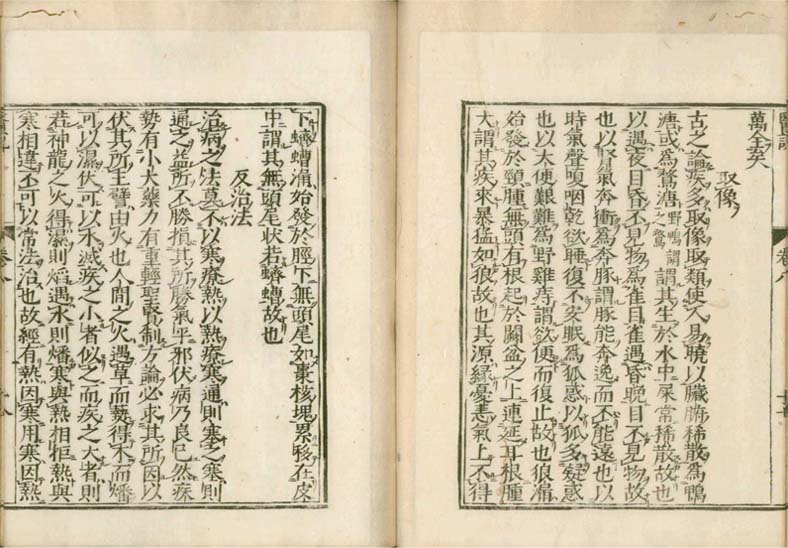 醫說 卷八
萬全矣
取像
古之論疾多取像取類使人易曉以臟腑稀散為鴨
溏或為鶩溏野鴨謂之鶩謂其生於水中屎常稀散故也
以遇夜目昏不見物為雀目雀遇昏晚目不見物故
也以腎氣奔衝為奔豚謂豚能奔逸而不能遠也以
時氣聲嗄咽乾欲睡復不安眠為狐惑以狐多疑惑
也以大便艱難為野雞痔謂欲便而復止故也狼漏
始發於頸腫無頭有根起於闕盆之上連延耳根腫
大謂其疾來暴猛如狼故也其源緣憂恚氣上不得
下蠐螬漏始發於脛下無頭尾如棗核塊累移在皮
中謂其無頭尾状若蠐螬故也
反治法
治病之法莫不以寒療熱以熱療寒通則塞之塞則
通之益所不勝損其所勝氣平邪伏病乃良已然疾
勢有小大藥力有重輕聖賢制方論必求其所因以
伏其所主譬由火也人間之火遇草而爇得木而燔
可以濕伏可以水滅疾之小者似之而疾之大者則
若神龍之火得濕則焰遇水則燔寒與熱相拒熱與
寒相違不可以常法治也故經有熱因寒用寒因熱
卷八